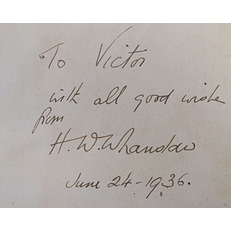 To Victor
with all good wishes
from
H. W. Whanslaw
June 24 - 1936.